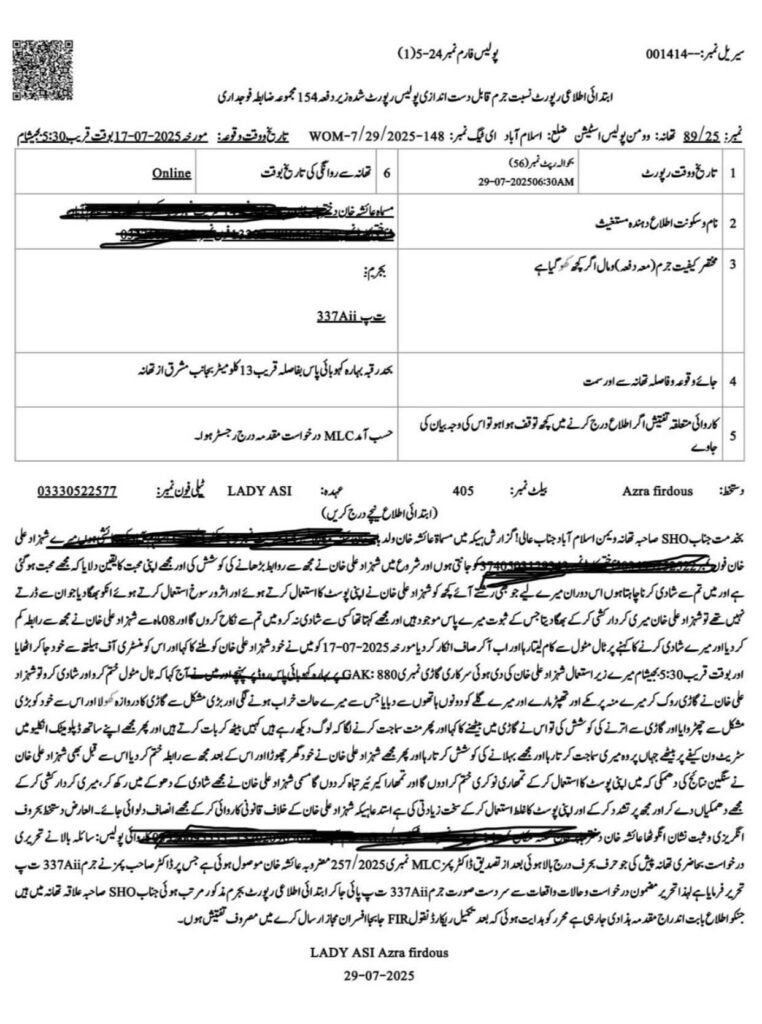 سیریل نمبر:--001414
پولیس فارم نمبر 24-5(1)
ابتدائی اطلاعی رپورٹ نسبت جرم قابل دست اندازی پولیس رپورٹ شدہ زیر دفعہ 154 مجموعہ ضابطہ فوجداری
نمبر: 89/25 تھانہ: وومن پولیس اسٹیشن ضلع: اسلام آباد ای ٹیگ نمبر: WOM-7/29/2025-148 تاریخ ووقت وقوعہ: مورخہ 17-07-2025 بوقت قریب 5:30 بجے شام
1 تاریخ ووقت رپورٹ
بحوالہ رپٹ نمبر (56)
29-07-2025 06:30AM
6 تھانہ سے روانگی کی تاریخ بوقت
Online
2 نام و سکونت اطلاع دہندہ مستغیث
مسماۃ عائشہ خان
3 مختصر کیفیت جرم (معہ دفعہ) ومال اگر کچھ کھو گیا ہے
بجرم:
337Aii ت پ
4 جائے وقوعہ و فاصلہ تھانہ سے اور سمت
بحد رقبہ بہارہ کہو بائی پاس بفاصلہ قریب 13 کلومیٹر بجانب مشرق از تھانہ
5 کاروائی متعلقہ تفتیش اگر اطلاع درج کرنے میں کچھ توقف ہوا ہو تو اس کی وجہ بیان کی
جاوے
حسب آمد MLC درخواست مقدمہ درج رجسٹر ہوا۔
دستخط: Azra firdous بیلٹ نمبر: 405 عہدہ: LADY ASI ٹیلی فون نمبر: 03330522577
(ابتدائی اطلاع نیچے درج کریں)
بخدمت جناب SHO صاحبہ تھانہ ویمن اسلام آباد جناب عالی! گزارش ہیکہ میں مسماۃ عائشہ خان ولد شہزاد علی
خان فون کو جانتی ہوں اور شروع میں شہزاد علی خان نے مجھ سے روابط بڑھانے کی کوشش کی اور مجھے اپنی محبت کا یقین دلایا کہ مجھے محبت ہوگئی
ہے اور میں تم سے شادی کرنا چاہتا ہوں اس دوران میرے لیے جو بھی رشتے آئے کچھ کو شہزاد علی خان نے اپنی پوسٹ کا استعمال کرتے ہوئے اور اثر و رسوخ استعمال کرتے ہوئے انکو بھگا دیا جو ان سے ڈرتے
نہیں تھے تو شہزاد علی خان میری کردار کشی کر کے بھگا دیتا جس کے ثبوت میرے پاس موجود ہیں اور مجھے کہتا تھا کسی سے شادی نہ کرو میں تم سے نکاح کروں گا اور 08 ماہ سے شہزاد علی خان نے مجھ سے رابطہ کم
کر دیا اور میرے شادی کرنے کا کہنے پر ٹال مٹول سے کام لیتا رہا اور اب آ کر صاف انکار کر دیا مورخہ 17-07-2025 کو میں نے خود شہزاد علی خان کو ملنے کا کہا اور اس کو منسٹری آف ہیلتھ سے خود جا کر اٹھایا
اور بوقت قریب 5:30 بجے شام میرے زیر استعمال شہزاد علی خان کی دی ہوئی سرکاری گاڑی نمبری GAK: 880 پر بہارہ کہو بائی پاس روڈ پر پہنچے اور میں نے آج کہا کہ ٹال مٹول ختم کرو اور شادی کرو تو شہزاد
علی خان نے گاڑی روک کر میرے منہ پر مکے اور تھپڑ مارے اور میرے گلے کو دونوں ہاتھوں سے دبایا جس سے میرے حالت خراب ہونے لگی اور بڑی مشکل سے گاڑی کا دروازہ کھولا اور اس سے خود کو بڑی
مشکل سے چھڑوایا اور گاڑی سے اترنے کی کوشش کی تو اس نے گاڑی میں بیٹھنے کا کہا اور پھر منت سماجت کرنے لگا کہ لوگ دیکھ رہے ہیں کہیں بیٹھ کر بات کرتے ہیں اور پھر مجھے اپنے ساتھ ڈپلومیٹک انکلیو میں
سٹریٹ ون کیفے پر بیٹھے جہاں پر وہ میری سماجت کرتا رہا اور مجھے بہلانے کی کوشش کرتا رہا اور پھر مجھے شہزاد علی خان نے خود گھر چھوڑا اور اس کے بعد مجھ سے رابطہ ختم کر دیا اس سے قبل بھی شہزاد علی خان
نے سنگین نتائج کی دھمکی کہ میں اپنی پوسٹ کا استعمال کر کے تمھاری نوکری ختم کرا دوں گا اور تمھارا کیرئیر تباہ کر دوں گا مسمی شہزاد علی خان نے مجھے شادی کے دھوکے میں رکھ کر، میری کردار کشی کر کے
مجھے دھمکیاں دے کر اور مجھ پر تشدد کر کے اور اپنی پوسٹ کا غلط استعمال کر کے سخت زیادتی کی ہے استدعا ہیکہ شہزاد علی خان کے خلاف قانونی کاروائی کر کے مجھے انصاف دلوائی جائے۔ العارض دستخط بحروف
انگریزی و ثبت نشان انگوٹھا عائشہ خان کاروائی پولیس: سائلہ بالا نے تحریری
درخواست بحاضری تھانہ پیش کی جو حرف بحرف درج بالا ہوئی بعد از تصدیق ڈاکٹر پمز MLC نمبری 257/2025 مضروبہ عائشہ خان موصول ہوئی ہے جس پر ڈاکٹر صاحب پمز نے جرم 337Aii ت پ
تحریر فرمایا ہے لہذا تحریر مضمون درخواست و حالات واقعات سے سردست صورت جرم 337Aii ت پ پائی جا کر ابتدائی اطلاعی رپورٹ بجرم مذکور مرتب ہوئی جناب SHO صاحبہ علاقہ تھانہ میں ہیں
جنکو اطلاع بابت اندراج مقدمہ ہذا دی جا رہی ہے محرر کو ہدایت ہوئی کہ بعد تکمیل ریکارڈ نقول FIR جا بجا افسران مجاز ارسال کرے میں مصروف تفتیش ہوں۔
LADY ASI Azra firdous
29-07-2025